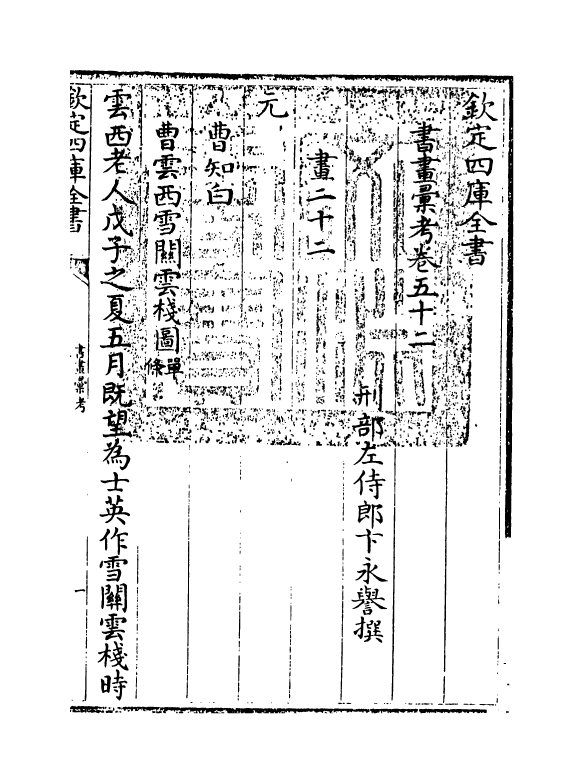 欽定四庫全書
書畫彙考卷五十二
刑部左侍郎卞永譽撰
畫二十二
元
曹知白
曹雲西雪關雲棧圖單條
雲西老人戊子之夏五月既望為士英作雪關雲棧時
欽定四庫全書
書畫彙考
一